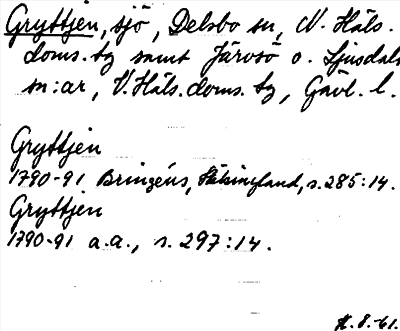 Gryttjen, sjö, Delsbo sn, N. Häls.
doms. tg samt Järvsö o. Ljusdals
sn:ar, V. Häls. doms. tg, Gävl. l.
Gryttjen
1790-91 Bringéus, Hälsingland, s. 285:14.
Gryttjen
1790-91 a.a., s. 297:14.
H. 8.-61.